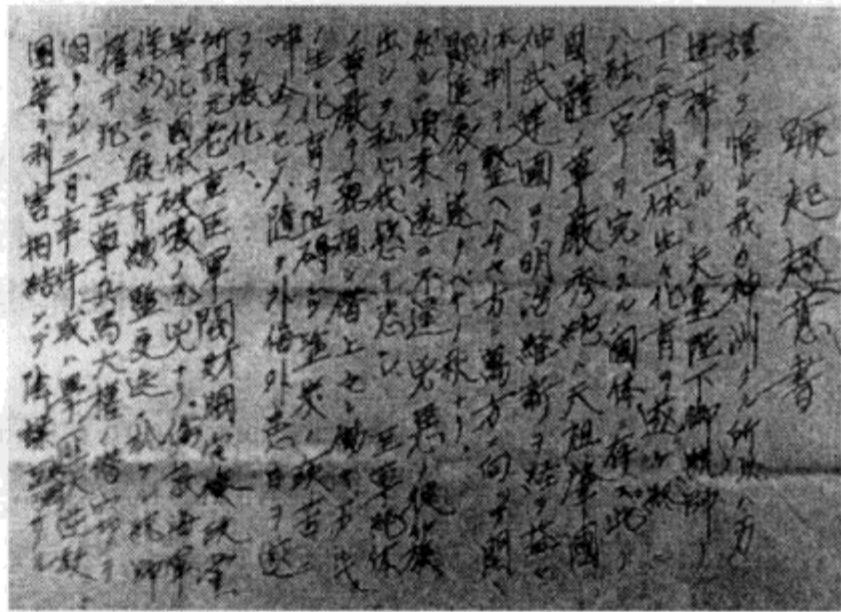 蹶起趣意書
謹ンデ惟ルニ我ガ神洲タル所以ハ万
世一神タル 天皇陛下御統帥ノ
下ニ挙國一体生々化育ヲ遂ゲ終ニ
八紘一宇ヲ完フスルノ國体ニ存ス此ノ
國體ノ尊嚴秀絶ハ天祖肇國
神武建國ヨリ明治維新ヲ経テ益々
体制ヲ整ヘ今ヤ方ニ萬方ニ向ッテ開
顕進展ヲ遂グベキノ秋ナリ
然ルニ頃来遂ニ不逞兇悪ノ徒簇
出シテ私心我慾ヲ恣ニシ 至尊絶体
ノ尊嚴ヲ藐視シ僭上セレ働キ万民
ノ生々化育ヲ阻碍シテ塗炭ノ疾苦ニ
呻吟セシメ 随ッテ外侮外患日ヲ逐
フテ激化ス
所謂元老重臣軍閥財閥官僚政黨
等ハ此ノ國体破壊ノ元兇ナリ、倫敦海軍
條約並ニ教育総監更迭ニ於ケル統帥
權干犯 至尊兵馬大權ノ僭窃ヲ
図リタル三月事件或ハ學匪共匪大逆教
團等ノ利害相結ンデ陰謀至ラザルナキ